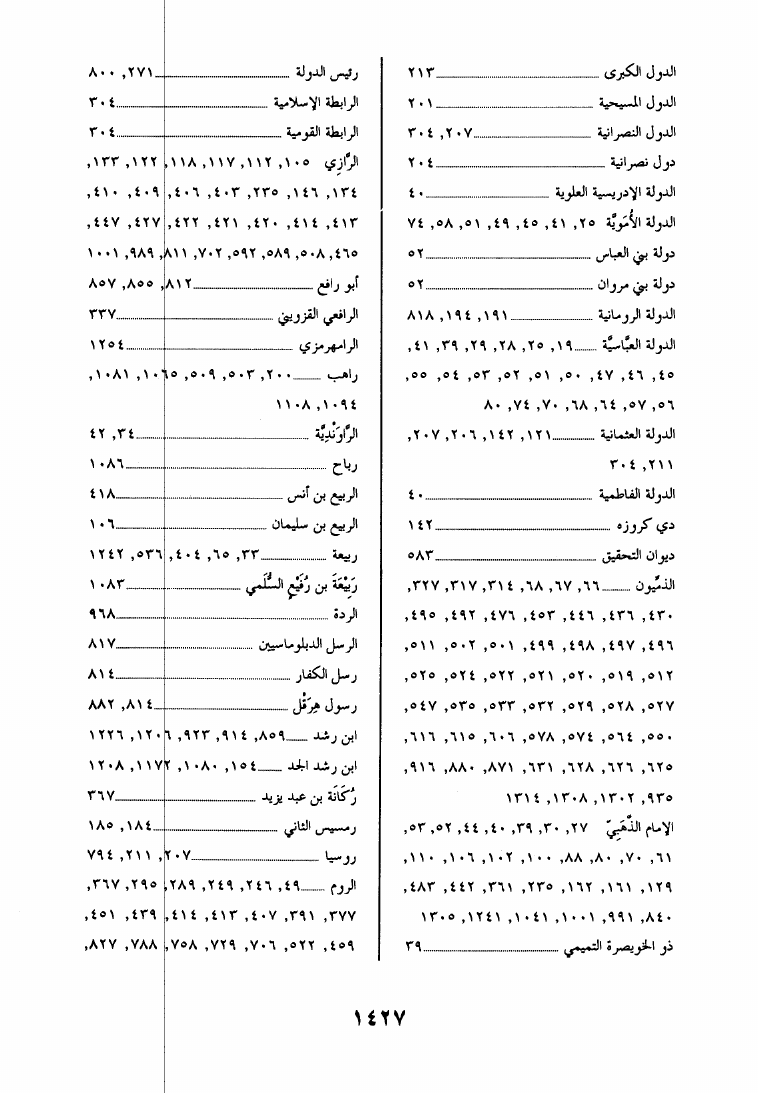 الدول الكبرى ... ٢١٣
الدول المسيحية ... ٢٠١
الدول النصرانية ... ٢٠٧, ٣٠٤
دول نصرانية ... ٢٠٤
الدولة الإدريسية العلوية ... ٤٠
الدولة الأُمَوِيَّة ٢٥, ٤١, ٤٥, ٤٩, ٥١, ٥٨, ٧٤
دولة بني العباس ... ٥٢
دولة بني مروان ... ٥٢
الدولة الرومانية ... ١٩١, ١٩٤, ٨١٨
الدولة العبَّاسيَّة ... ١٩, ٢٥, ٢٨, ٢٩, ٣٩, ٤١,
٤٥, ٤٦, ٤٧, ٥٠, ٥١, ٥٢, ٥٣, ٥٤, ٥٥,
٥٦, ٥٧, ٦٤, ٦٨, ٧٠, ٧٤, ٨٠
الدولة العثمانية ... ١٢١, ١٤٢, ٢٠٦, ٢٠٧,
٢١١, ٣٠٤
الدولة الفاطمية ... ٤٠
دي كروزه ... ١٤٢
ديوان التحقيق ... ٥٨٣
الذمِّيون ... ٦٦, ٦٧, ٦٨, ٣١٤, ٣١٧, ٣٢٧,
٤٣٠, ٤٣٦, ٤٤٦, ٤٥٣, ٤٧٦, ٤٩٢, ٤٩٥,
٤٩٦, ٤٩٧, ٤٩٨, ٤٩٩, ٥٠١, ٥٠٢, ٥١١,
٥١٢, ٥١٩, ٥٢٠, ٥٢١, ٥٢٢, ٥٢٤, ٥٢٥,
٥٢٧, ٥٢٨, ٥٢٩, ٥٣٢, ٥٣٣, ٥٣٥, ٥٤٧,
٥٥٠, ٥٦٤, ٥٧٤, ٥٧٨, ٦٠٦, ٦١٥, ٦١٦,
٦٢٥, ٦٢٦, ٦٢٨, ٦٣١, ٨٧١, ٨٨٠, ٩١٦,
٩٣٥, ١٣٠٢, ١٣٠٨, ١٣١٤
الإمام الذَّهَبِيّ ٢٧, ٣٠, ٣٩, ٤٠, ٤٤, ٥٢, ٥٣,
٦١, ٧٠, ٨٠, ٨٨, ١٠٠, ١٠٢, ١٠٦, ١١٠,
١٢٩, ١٦١, ١٦٢, ٢٣٥, ٣٦١, ٤٤٢, ٤٨٣,
٨٤٠, ٩٩١, ١٠٠١, ١٠٤١, ١٢٤١, ١٣٠٥
ذو الخويصرة التميمي ... ٣٩
رئيس الدولة ... ٢٧١, ٨٠٠
الرابطة الإسلامية ... ٣٠٤
الرابطة القومية ... ٣٠٤
الرَّازِي ١٠٥, ١١٢, ١١٧, ١١٨, ١٢٢, ١٣٣,
١٣٤, ١٤٦, ٢٣٥, ٤٠٣, ٤٠٦, ٤٠٩, ٤١٠,
٤١٣, ٤١٤, ٤٢٠, ٤٢١, ٤٢٢, ٤٢٧, ٤٤٧,
٤٦٥, ٥٠٨, ٥٨٩, ٥٩٢, ٧٠٢, ٨١١, ٩٨٩, ١٠٠١
أبو رافع ... ٨١٢, ٨٥٥, ٨٥٧
الرافعي القزويني ... ٣٣٧
الرامهرمزي ... ١٢٥٤
راهب ... ٢٠٠, ٥٠٣, ٥٠٩, ١٠٦٥, ١٠٨١,
١٠٩٤, ١١٠٨
الرَّاوَنْدِيَّة ... ٣٤, ٤٢
رباح ... ١٠٨٦
الربيع بن أنس ... ٤١٨
الربيع بن سليمان ... ١٠٦
ربيعة ... ٣٣, ٦٥, ٤٠٤, ٥٣٦, ١٢٤٢
رَبِيْعَةَ بن رُفَيْعٍ السُّلَمي ... ١٠٨٣
الردة ... ٩٦٨
الرسل الدبلوماسيين ... ٨١٧
رسل الكفار ... ٨١٤
رسول هِرَقْل ... ٨١٤, ٨٨٢
ابن رشد ... ٨٥٩, ٩١٤, ٩٢٣, ١٢٠٦, ١٢٢٦
ابن رشد الجد ... ١٥٤, ١٠٨٠, ١١٧٢, ١٢٠٨
رُكَانَة بن عبد يزيد ... ٣٦٧
رمسيس الثاني ... ١٨٤, ١٨٥
روسيا ... ٢٠٧, ٢١١, ٧٩٤
الروم ... ٤٩, ٢٤٦, ٢٤٩, ٢٨٩, ٢٩٥, ٣٦٧,
٣٧٧, ٣٩١, ٤٠٧, ٤١٣, ٤١٤, ٤٣٩, ٤٥١,
٤٥٩, ٥٢٢, ٧٠٦, ٧٢٩, ٧٥٨, ٧٨٨, ٨٢٧,
١٤٢٧